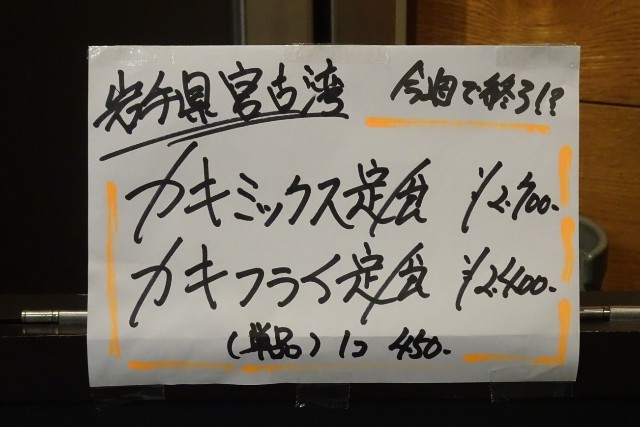 岩手県宮古湾 今週で終了!?
カキミックス定食 ¥2.700-
カキフライ定食 ¥2.400-
(単品) 1コ 450-